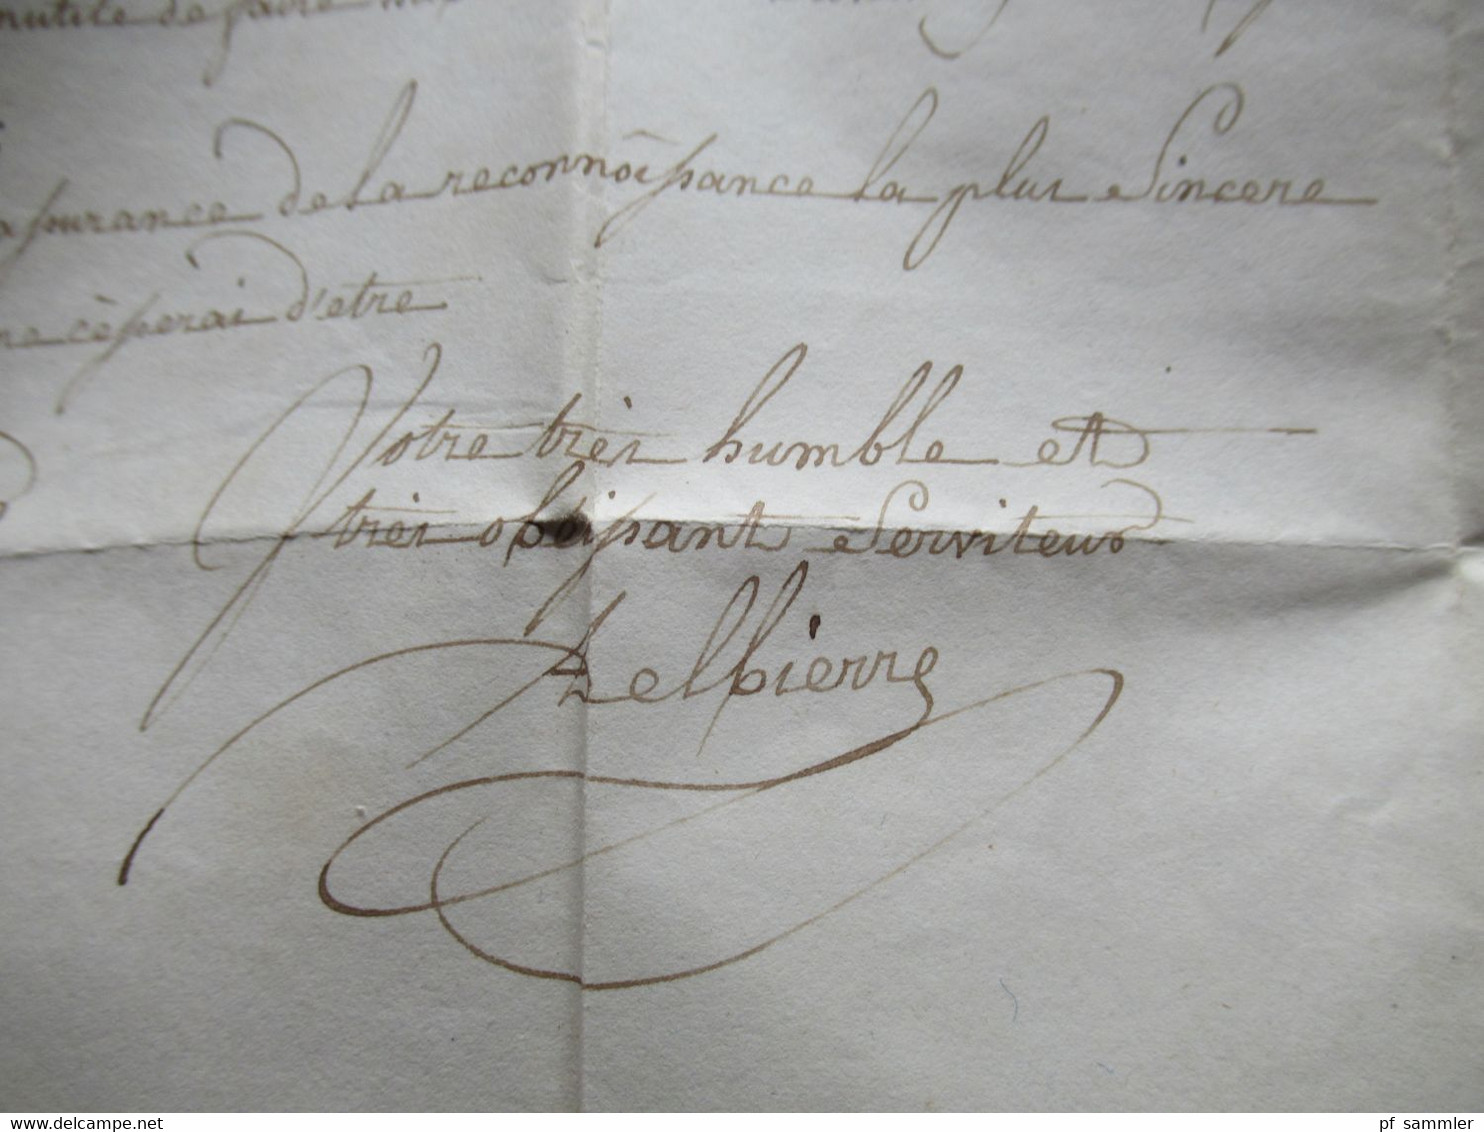 inutile de faire
assurance de la reconnoîssance la plus Sincere
ne cèsserai d'etre
Votre très humble et
très obeissant Serviteur
Delbierre
pf sammler